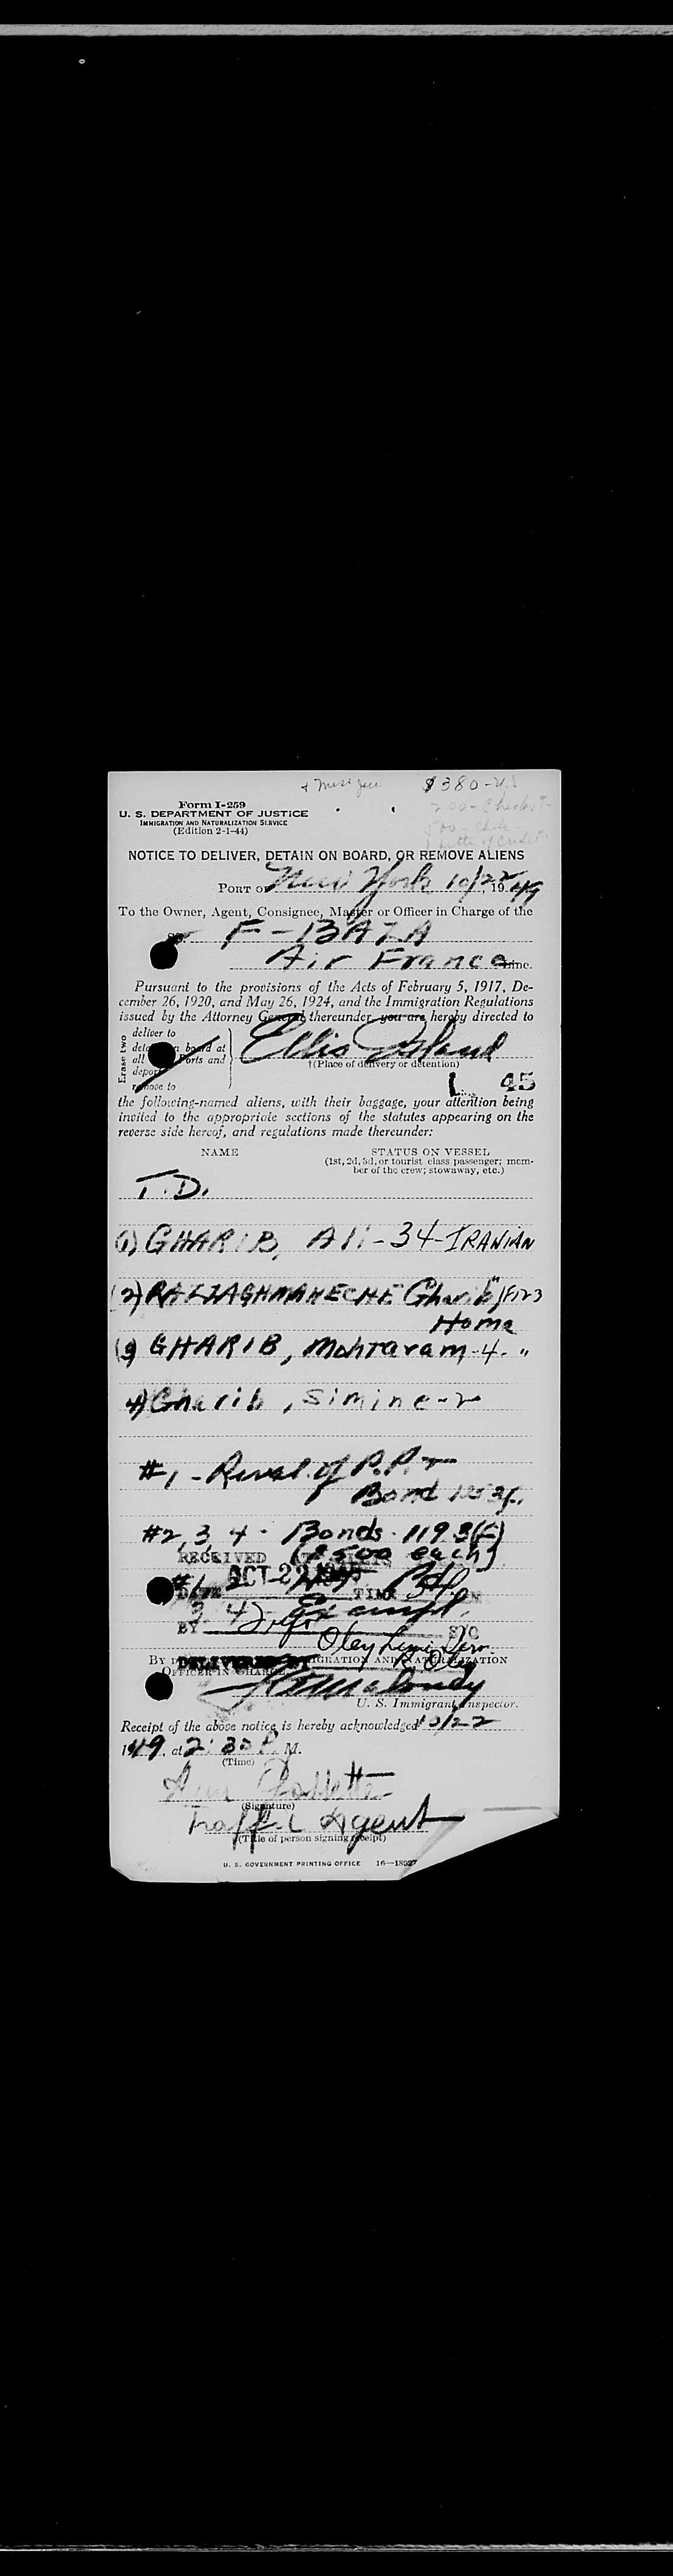 $380-U.S
200-Checks
Form I-259
U. S. DEPARTMENT OF JUSTICE
IMMIGRATION AND NATURALIZATION SERVICE
(Edition 2-1-44)
NOTICE TO DELIVER, DETAIN ON BOARD, OR REMOVE ALIENS
PORT OF New York 10/22, 1949
To the Owner, Agent, Consignee, Master or Officer in Charge of the
F-BAZA
Air France Line.
Pursuant to the provisions of the Acts of February 5, 1917, De-
cember 26, 1920, and May 26, 1924, and the Immigration Regulations
issued by the Attorney General thereunder, you are hereby directed to
Erase two
deliver to
detain on board at
all ports and
deport
remove to
Ellis Island
†(Place of delivery or detention)
45
the following-named aliens, with their baggage, your attention being
invited to the appropriate sections of the statutes appearing on the
reverse side hereof, and regulations made thereunder:
NAME
STATUS ON VESSEL
(1st, 2d, 3d, or tourist class passenger; mem-
ber of the crew; stowaway, etc.)
T.D.
(1) GHARIB, Ali-34-IRANIAN
(2) RAZZAGHMANECHE Gharib
Homa
(3) GHARIB, Mohtaram-4- "
4) Gharib, Simine-2
#1 - of P.P.
Bond
#2, 3, 4 - Bonds - 119.3(F)
($500 each)
RECEIVED
OCT 22
DATE TIME
BY
DELIVERED BY
BY IMMIGRATION AND NATURALIZATION
OFFICER IN CHARGE
U. S. Immigrant Inspector.
Receipt of the above notice is hereby acknowledged 10/22
1949, at 2:30 P. M.
(Time)
(Signature)
Traffic Agent
(Title of person signing receipt)
U. S. GOVERNMENT PRINTING OFFICE 16—18027